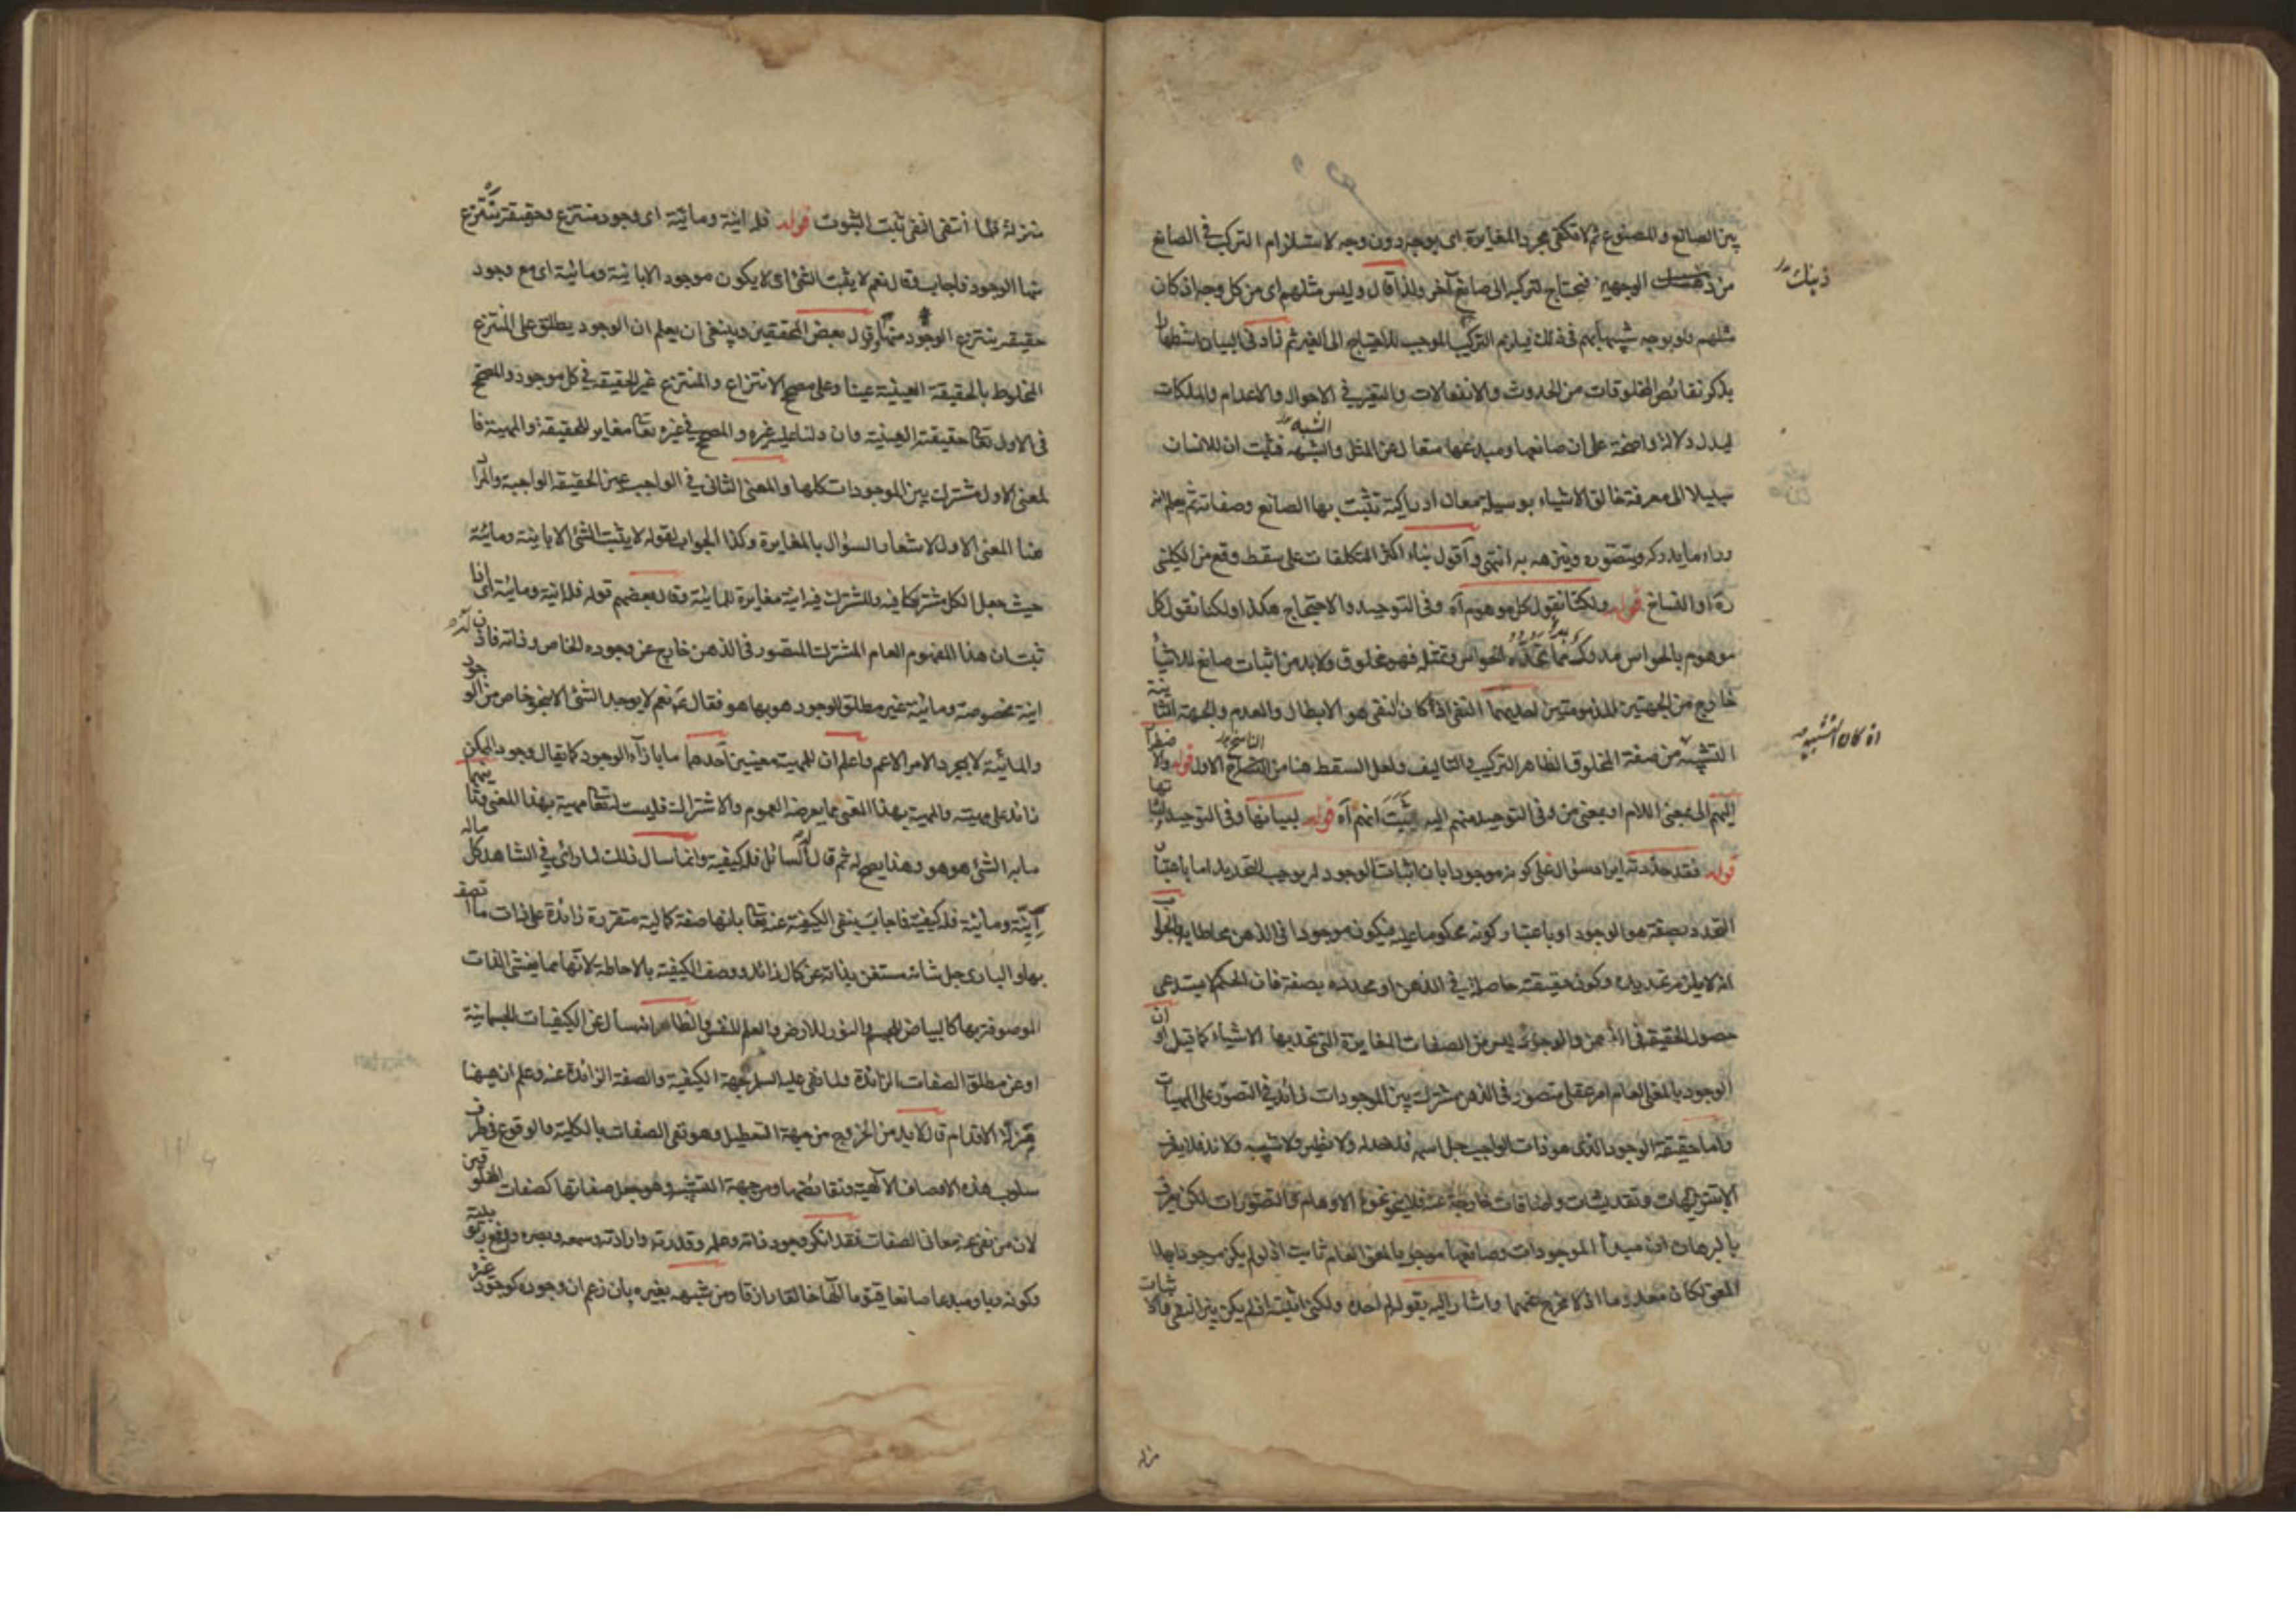 بين الصانع والمصنوع ثم لا تكفى مجرد المغايرة اى بوجه دون وجه لاستلزام التركب فى الصانع
من الوجهين فيحتاج لتركبه الى صانع آخر ولذا قال وليس مثلهم اى من كل وجه اذ كان
ذينك
مثلهم ولو بوجه شبيها بهم فى ذلك فيلزم التركيب الموجب للاحتياج الى الغير ثم زاد فى البيان
بذكر نقائص المخلوقات من الحدوث والانفعالات والتغير فى الاحوال والاعدام والملكات
ليدل دلالة واضحة على ان صانعها ومبدعها متعال عن المثل والشبه فثبت ان للانسان
سبيلا الى معرفة خالق الاشياء بوسيلة معان ادراكية تثبت بها الصانع وصفاته ثم يعلم انه
وراء ما يدركه ويتصوره وينزهه به انتهى وأقول بناء اكثر التكلفات على سقط وقع من الكلينى
ره او النساخ قوله ولكنا نقول كل موهوم آه وفى التوحيد والاحتجاج هكذا ولكنا نقول كل
موهوم بالحواس مدرك بها تحده الحواس وتمثله فهو مخلوق ولا بد من اثبات صانع للاشياء
خارج من الجهتين المذمومتين احديهما النفى اذ كان النفى هو الابطال والعدم والجهة الثانية
اذ كان التشبيه
التشبيه من صفة المخلوق الظاهر التركيب والتاليف ولعل السقط هنا من الناسخ الاول قوله والاضطرار
اليهم الى بمعنى اللام او بمعنى من وفى التوحيد منهم اليه اثبت انهم آه قوله لبيانها وفى التوحيد
قوله فقد حددته ايراد سؤال على كونه موجودا بان اثبات الوجود له يوجب التحديد اما باعتبار
التحدد بصفة هو الوجود او باعتبار كونه محكوما عليه فيكون موجودا فى الذهن محاطا به والجواب
انه لا يلزم تحديده وكون حقيقته حاصلة فى الذهن او محدده بصفة فان الحكم لا يستدعى
حصول الحقيقة فى الذهن والوجود ليس من الصفات المغايرة التى تحد بها الاشياء كما قيل ان
الوجود بالمعنى العام امر عقلى متصور فى الذهن مشترك بين الموجودات زائد فى التصور على المهيات
واما حقيقة الوجود الذى هو ذات الواجب جل اسمه فلا حد له ولا نظير ولا شبيه ولا ند فلا يعرف
الا بتنزيهات وتقديسات واضافات خارجة عنه فلا ينحو نحوه الاوهام والتصورات لكن يعرف
بالبرهان ان مبدأ الموجودات وصانعها موجود بالمعنى العام ثابت اذ لو لم يكن موجودا بهذا
المعنى لكان معدوما اذ لا مخرج عنهما واشار اليه بقوله لم احده ولكنى اثبته اذ لم يكن بين النفى والاثبات
منزلة
منزلة فلما انتفى النفى ثبت الثبوت قوله فله انية ومائية اى وجود منتزع وحقيقة ينتزع
منها الوجود فاجاب وقال نعم لا يثبت الشئ اى لا يكون موجود الا بانية ومائية اى مع وجود
حقيقة ينتزع الوجود منها وقال بعض المحققين وينبغى ان يعلم ان الوجود يطلق على المنتزع
المخلوط بالحقيقة العينية عينا وعلى مصحح الانتزاع والمنتزع غير الحقيقة فى كل موجود والمصحح
فى الاول تعالى حقيقته العينية وان دلنا عليه غيره والمصحح فى غيره تعالى مغاير للحقيقة والمهية فا
لمعنى الاول مشترك بين الموجودات كلها والمعنى الثانى فى الواجب عين الحقيقة الواجبة والمراد
هنا المعنى الاول لاشعار السؤال بالمغايرة وكذا الجواب لقوله لا يثبت الشئ الا بانية ومائية
حيث جعل الكل مشتركا فيه والمشترك فيه انية مغايرة للمائية وقال بعضهم قوله فله انية ومائية اى اذا
ثبت ان هذا المفهوم العام المشترك المتصور فى الذهن خارج عن وجوده الخاص وذاته فاذن له
انية مخصوصة ومائية غير مطلق الوجود هو بها هو فقال عم نعم لا يوجد الشئ الا بنحو خاص من الوجود
والمائية لا بمجرد الامر الاعم واعلم ان للمهية معنيين احدهما ما بازاء الوجود كما يقال وجود الممكن
زائد على مهيته والمهية بهذا المعنى مما يعرضه العموم والاشتراك فليست له تعالى مهية بهذا المعنى وثانيهما
ما به الشئ هو هو وهذا يصح له ثم قال له السائل فله كيفية وانما سال ذلك لما رأى فى الشاهد كل ماله
انية ومائية فله كيفية فاجاب بنفى الكيفية عنه تعالى بانها صفة كمالية متقررة زائدة على ذات ما اتصف
بها والبارى جل شانه مستغن بذاته عن كمال زائد ووصف الكيفية بالاحاطة لانها مما يغشى الذات
الموصوفة بها كالبياض للجسم والنور للارض والعلم للنفس والظاهر انه سأل عن الكيفيات الجسمانية
او عن مطلق الصفات الزائدة ولما نفى عليه السلم جهة الكيفية والصفة الزائدة عنه وعلم ان ههنا
مزلة الاقدام قال لا بد من الخروج من جهة التعطيل وهو نفى الصفات بالكلية والوقوع فى طرف
سلوب هذه الاوصاف الالهية ونقائضها ومن جهة التشبيه وهو جعل صفاتها كصفات المخلوقين
لان من نفى عنه معانى الصفات فقد انكر وجود ذاته وعلمه وقدرته وارادته وسمعه وبصره ورفع ربوبيته
وكونه ربا ومبدعا صانعا قيوما الها خالقا رازقا ومن شبهه بغيره بان زعم ان وجوده كوجود غيره